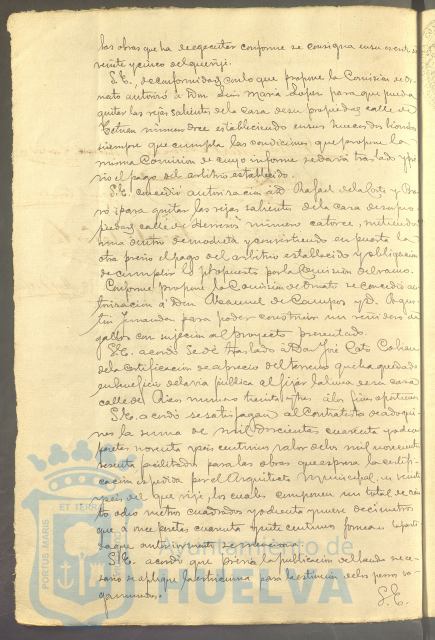 las obras que ha de egecutar conforme se consigna en su escrito
veinte y cinco del que rije.
S.E., de conformidad con lo que propone la Comision de Or-
nato autorizó a Don Luis Maria Lopez para que pueda
quitar las rejas salientes de la casa de su propiedad calle de
Tetuan número doce estableciendo en sus huecos
siempre que cumpla las condiciones que propone la
misma Comision de cuyo informe se dará traslado y pré-
vio el pago del arbitrio establecido.
S.E. concedió autorizacion á D. Rafael de la Corte y Bra-
vo para quitar las rejas salientes de la casa de su pro-
piedad calle de número catorce, metiendo
una dentro de modeta y convirtiendo en puerta la
otra prévio el pago del arbitrio establecido y obligacion
de cumplir lo propuesto por la Comision del ramo.
Conforme propone la Comision de Ornato se concedió au-
torizacion á Don Manuel de Campos y D. Agus-
tin para poder construir un reñidero de
gallos con sujecion al proyecto presentado.
S.E. acordó se dé traslado á Don José Cots
de la certificacion de aprecio del terreno que ha quedado
en beneficio de la via pública al fijar la linea en su casa
calle de Rico número treinta y tres á los fines oportunos.
S.E. acordó se satisfagan al Contratista de adoqui-
nes la suma de mil doscientas cuarenta y
pesetas noventa y seis centimos valor de los mil novecientos
sesenta facilitados para las obras que espresa la certifi-
cacion espedida por el Arquitecto Municipal, en veinte
y seis del que rije, los cuales componen un total de cien-
to ocho metros cuadrados y decimetros
que á once pesetas cuarenta y siete centimos forman la parti-
da que anteriormente se menciona.
S.E. acordó que prévia la publicacion del bando nece-
sario se aplique la estricnina para la estincion de los perros va-
gamundos.
S.E.
PORTUS MARIS
ET TERRÆ
Ayuntamiento de
HUELVA